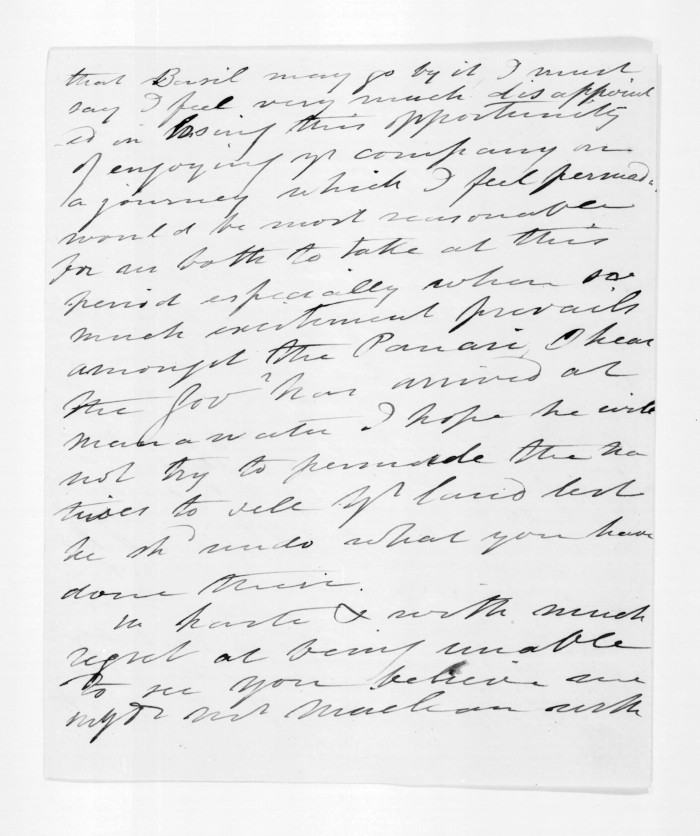 that Basil may go by it I must
say I feel very much disappoint
-ed in losing this opportunity
of enjoying yr company on
a journey which I feel persuad
would be most reasonable
for us both to take at this
period especially when so
much excitement prevails
amongst the Panari, I hear
the Govr has arrived at
manawatu I hope he will
not try to persuade the na
tives to sell yr land lest
he shd undo what you have
done there.
In haste & with much
regret at being unable
to see you believe me
my dr Mr Maclean with